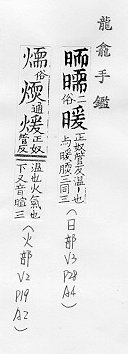 龍龕手鑑
曘俗二暖正奴管反温〻也
三同三
(日部 V3 P28 A4)
燸俗煗通煖正奴管反温也火氣也
下又音暄三
(火部 V2 P19 A2)